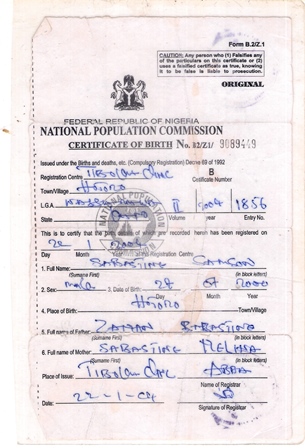 Form B.2/Z.1
CAUTION: Any person who (1) Falsifies any
of the particulars on this certificate or (2)
uses a falsified certificate as true, knowing
it to be false is liable to prosecution.
ORIGINAL
FEDERAL REPUBLIC OF NIGERIA
NATIONAL POPULATION COMMISSION
CERTIFICATE OF BIRTH No. B2/Z1/ 9089449
Issued under the Births and deaths, etc. (Compulsory Registration) Decree 69 of 1992
Registration Centre B
Certificate Number
Town/Village Hotoro
L.G.A II 2004 1856
State Volume year Entry No.
This is to certify that the birth recorded herein has been registered on
22 1 2004
Day Month Year at this Registration Centre
1. Full Name: SABASTINE SAMSON
(Surname First) (in block letters)
2. Sex: male 3. Date of Birth: 24 01 2000
Day Month Year
4. Place of Birth: HOTORO
Town/Village
5. Full name of Father: SABASTINE
(Surname First) (in block letters)
6. Full name of Mother: SABASTINE
(Surname First) (in block letters)
Place of Issue:
Name of Registrar
Date: 22-1-04
Signature of Registrar